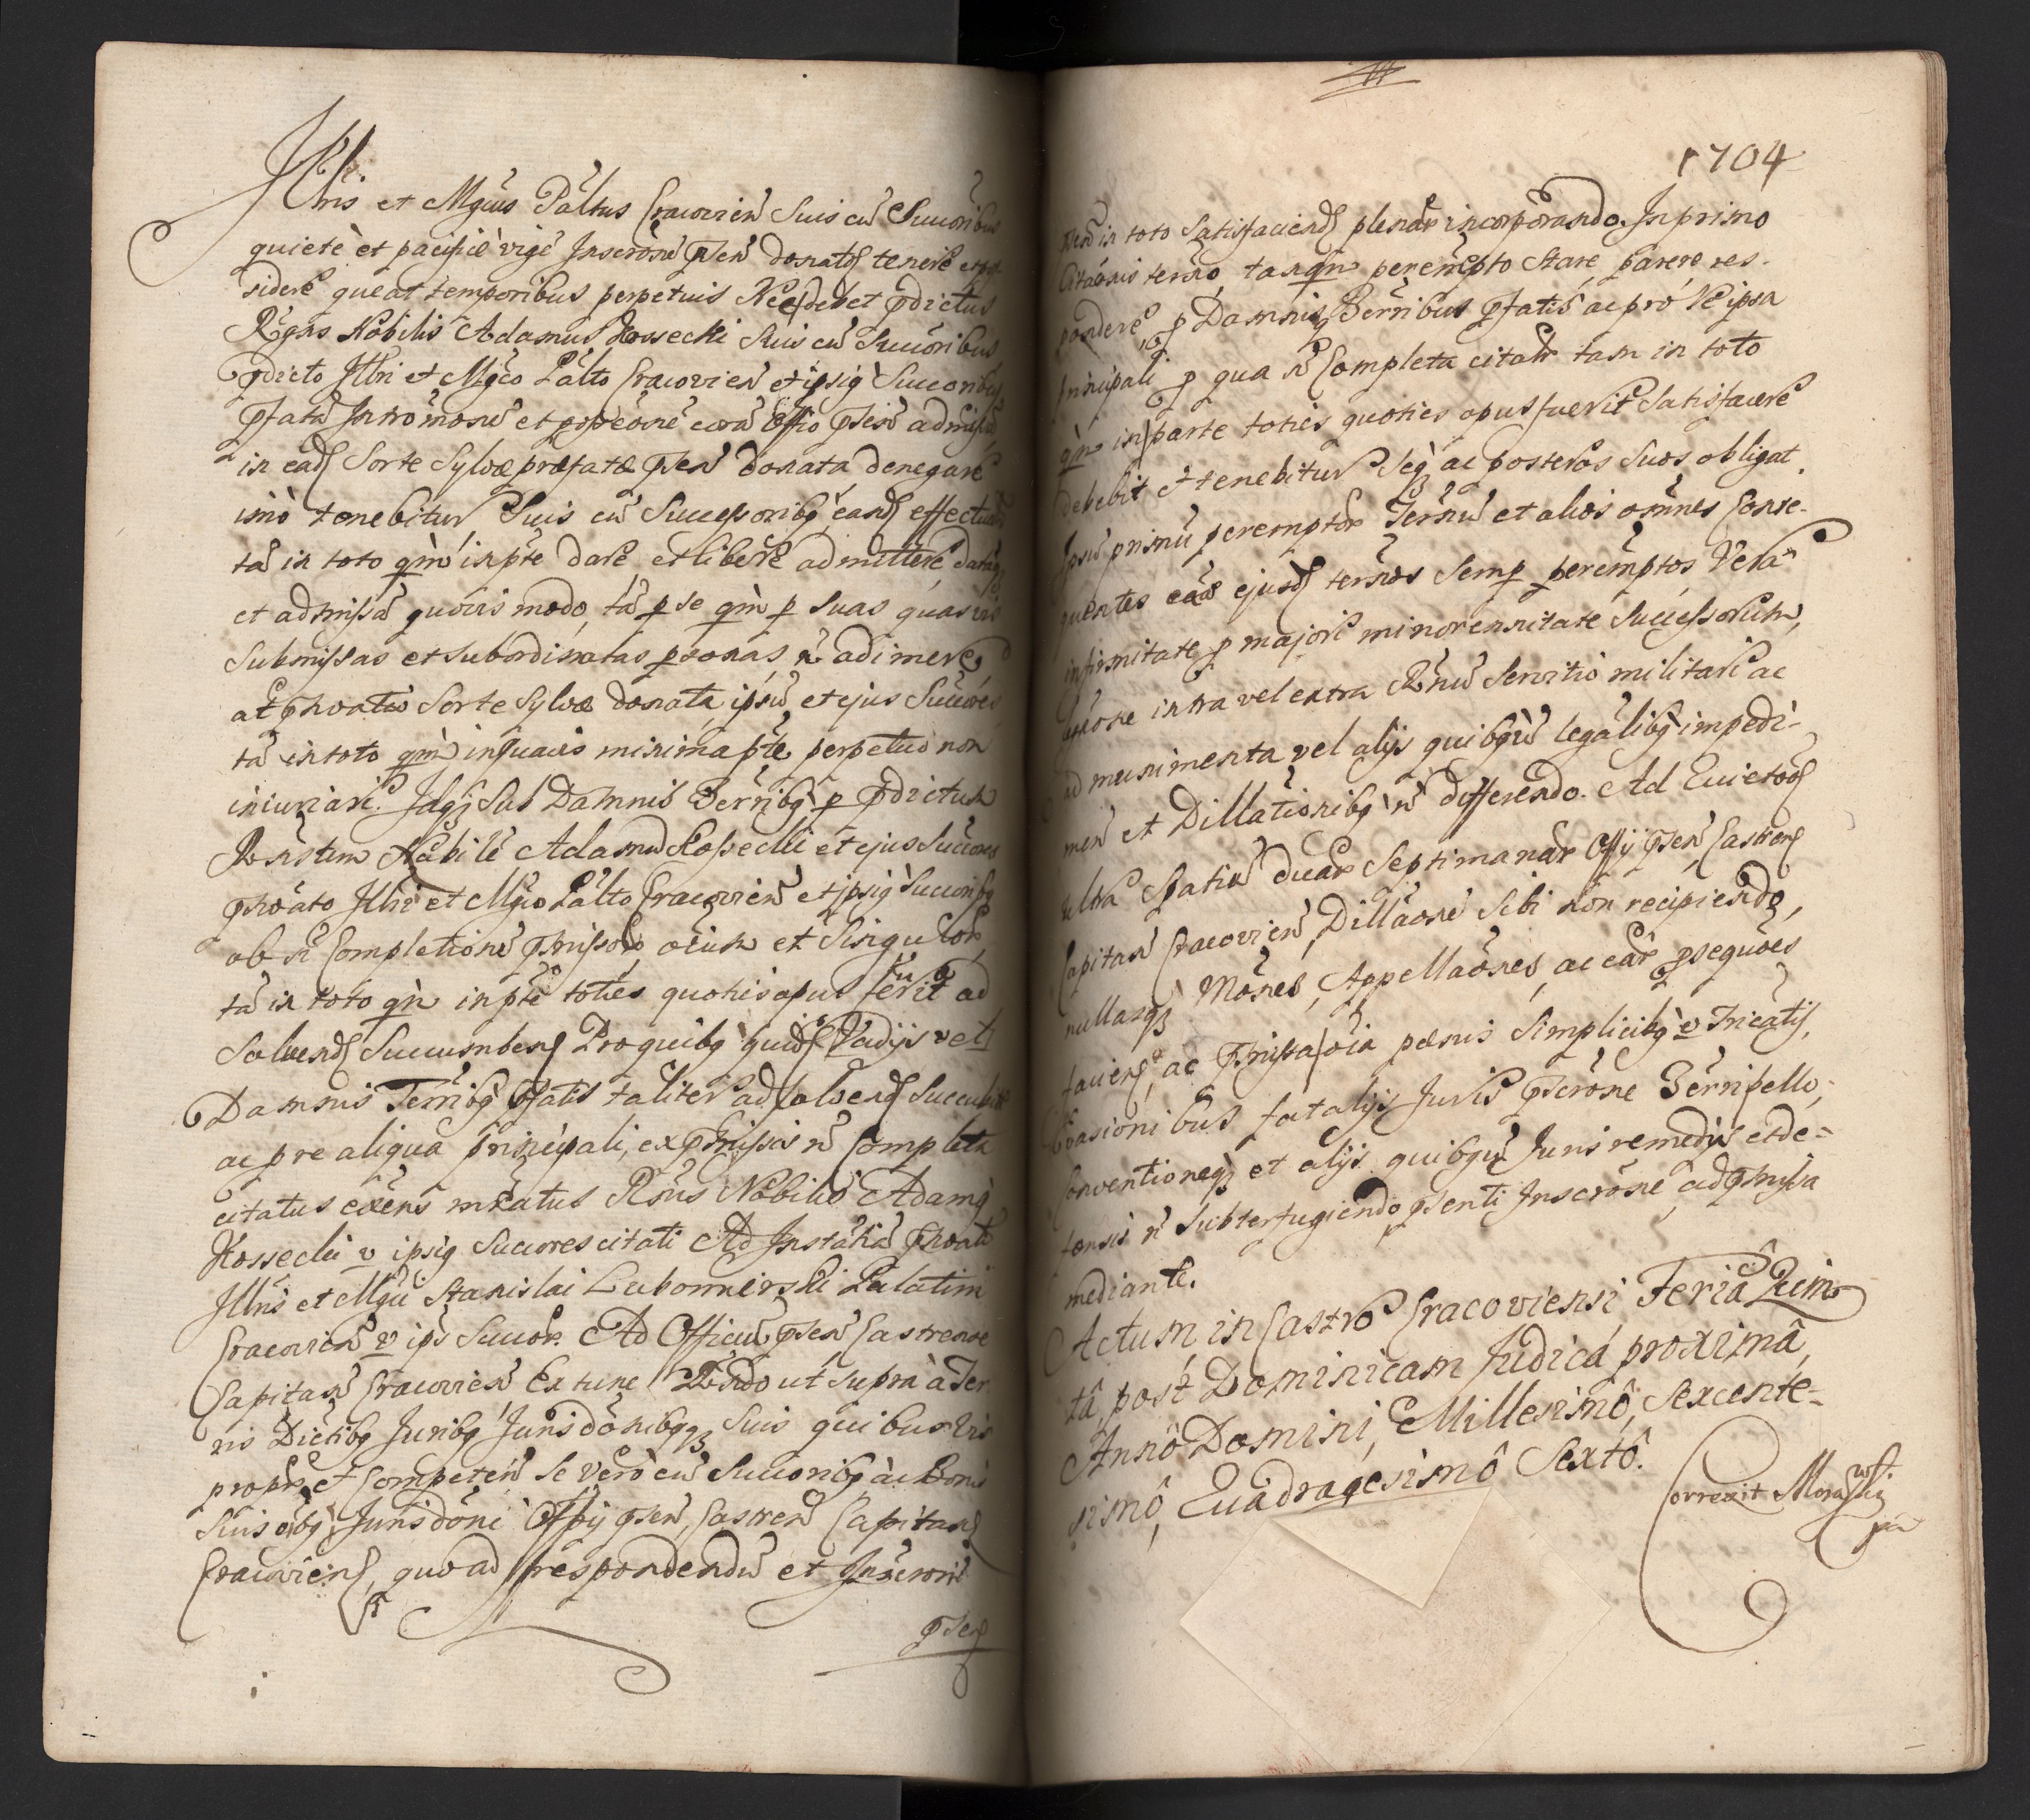 Illris et Mgcus Paltus Cracovien Suis cu Succoribus
quietè et pacificè vige Inscrone psen donata tenere et po
sidere queat temporibus perpetuis Nec debet pdictus
Rgns Nobilis Adamus Kossecki Suis cu Succoribus
pdicto Illri et Mgco Palto Cracovien et ipsig Succoribus
pfata Intromone et possone cora Offio psen admissa
in ead Sorte Sylvæ præfatæ psen donata denegare
imò tenebitur Suis cu Successoribg eand effectua
ta in toto qm in pte dare et libere admittere, data
et admissa quovis modo, ta p se qm p suas quasvis
Submissas et subordinatas psonas n adimere,
at pnoato Sorte Sylvæ donata ipsu et ejus Succores
ta in toto qm in quavis minima pte perpetuò non
iniuriari. Idqz sub Damnis Terribg p pdictum
Rnstem Nobile Adamu Kossecki et ejus Succores
pnoato Illri et Mgco Palto Cracovien et ipsig Succoribg
ob n Completione pmissor oium et Singulor
ta in toto qm in pte toties quotis opus fuerit ad
Solvend Succumben Pro quibg quid Vadijs vel
Damnis Terribg pfatis taliter ad solvend Succubit
ac p re aliqua principali, ex pmissis n completa
citatus exens mratus Rgns Nobilis Adamg
Kossecki v ipsig Succores citati Ad Instatia pnoati
Illris et Mgci Stanislai Lubomirski Palatini
Cracovien v ips Succor. Ad Officiu psen Castrense
Capitan Cracovien Ex tunc Rndo ut supra à Ter
ris Dictibg Juribg Jurisdonibgqz Suis quibusvis
propr et competen se verò cu Succoribg ac Bonis
Suis oibg Jurisdoni Offij psen, Castren Capitan
Cracovien, quo ad respondendu et Inscroni
psen
1704
psen in toto Satisfaciend plenar incorporando. In primo
Citaonis termo, tanqm peremtpto stare, parere res-
pondere, p Damnis Terribus pfatis ac pro Re ipsa
principali p qua n Completa citatr tam in toto
qm in parte toties quoties opus fuerit Satisfacere
debebit et tenebitur seqz ac posteros Suos obligat.
Ipsu primu peremptor Ternu et alios omnes Conse-
quentes eare ejusd ternos Semp peremptos Vera
infirmitate p majori minorennitate Successorum,
intra vel extra Rnu Servitio militari ac
ad munimenta vel alijs quibgvis legalibg impedi-
men et Dillationibg n differendo. Ad Evictores
ultra Spatiu duar Septimanar Offij psen Castren
Capitan Cracovien Dillaone Sibi non recipiendo,
nullasqz Mones, Appellaones, ac ear psequoes
facien, ac pmissa oia pænis Simplicibg v Tricatis,
Evasionibus fatalijs Juris pscrone Terripello,
Conventioneqz et alijs quibgvis Juris remedijs et de-
fensis n Subterfugiendo, psenti Inscrone ad pmissa
mediante.
Actum in Castro Cracoviensi, Feriâ Quin
tâ, post Dominicam Judica proximâ,
Annô Domini, Millesimô, Sexcente-
simô, Quadragesimô Sextô.
Correxit Morawski